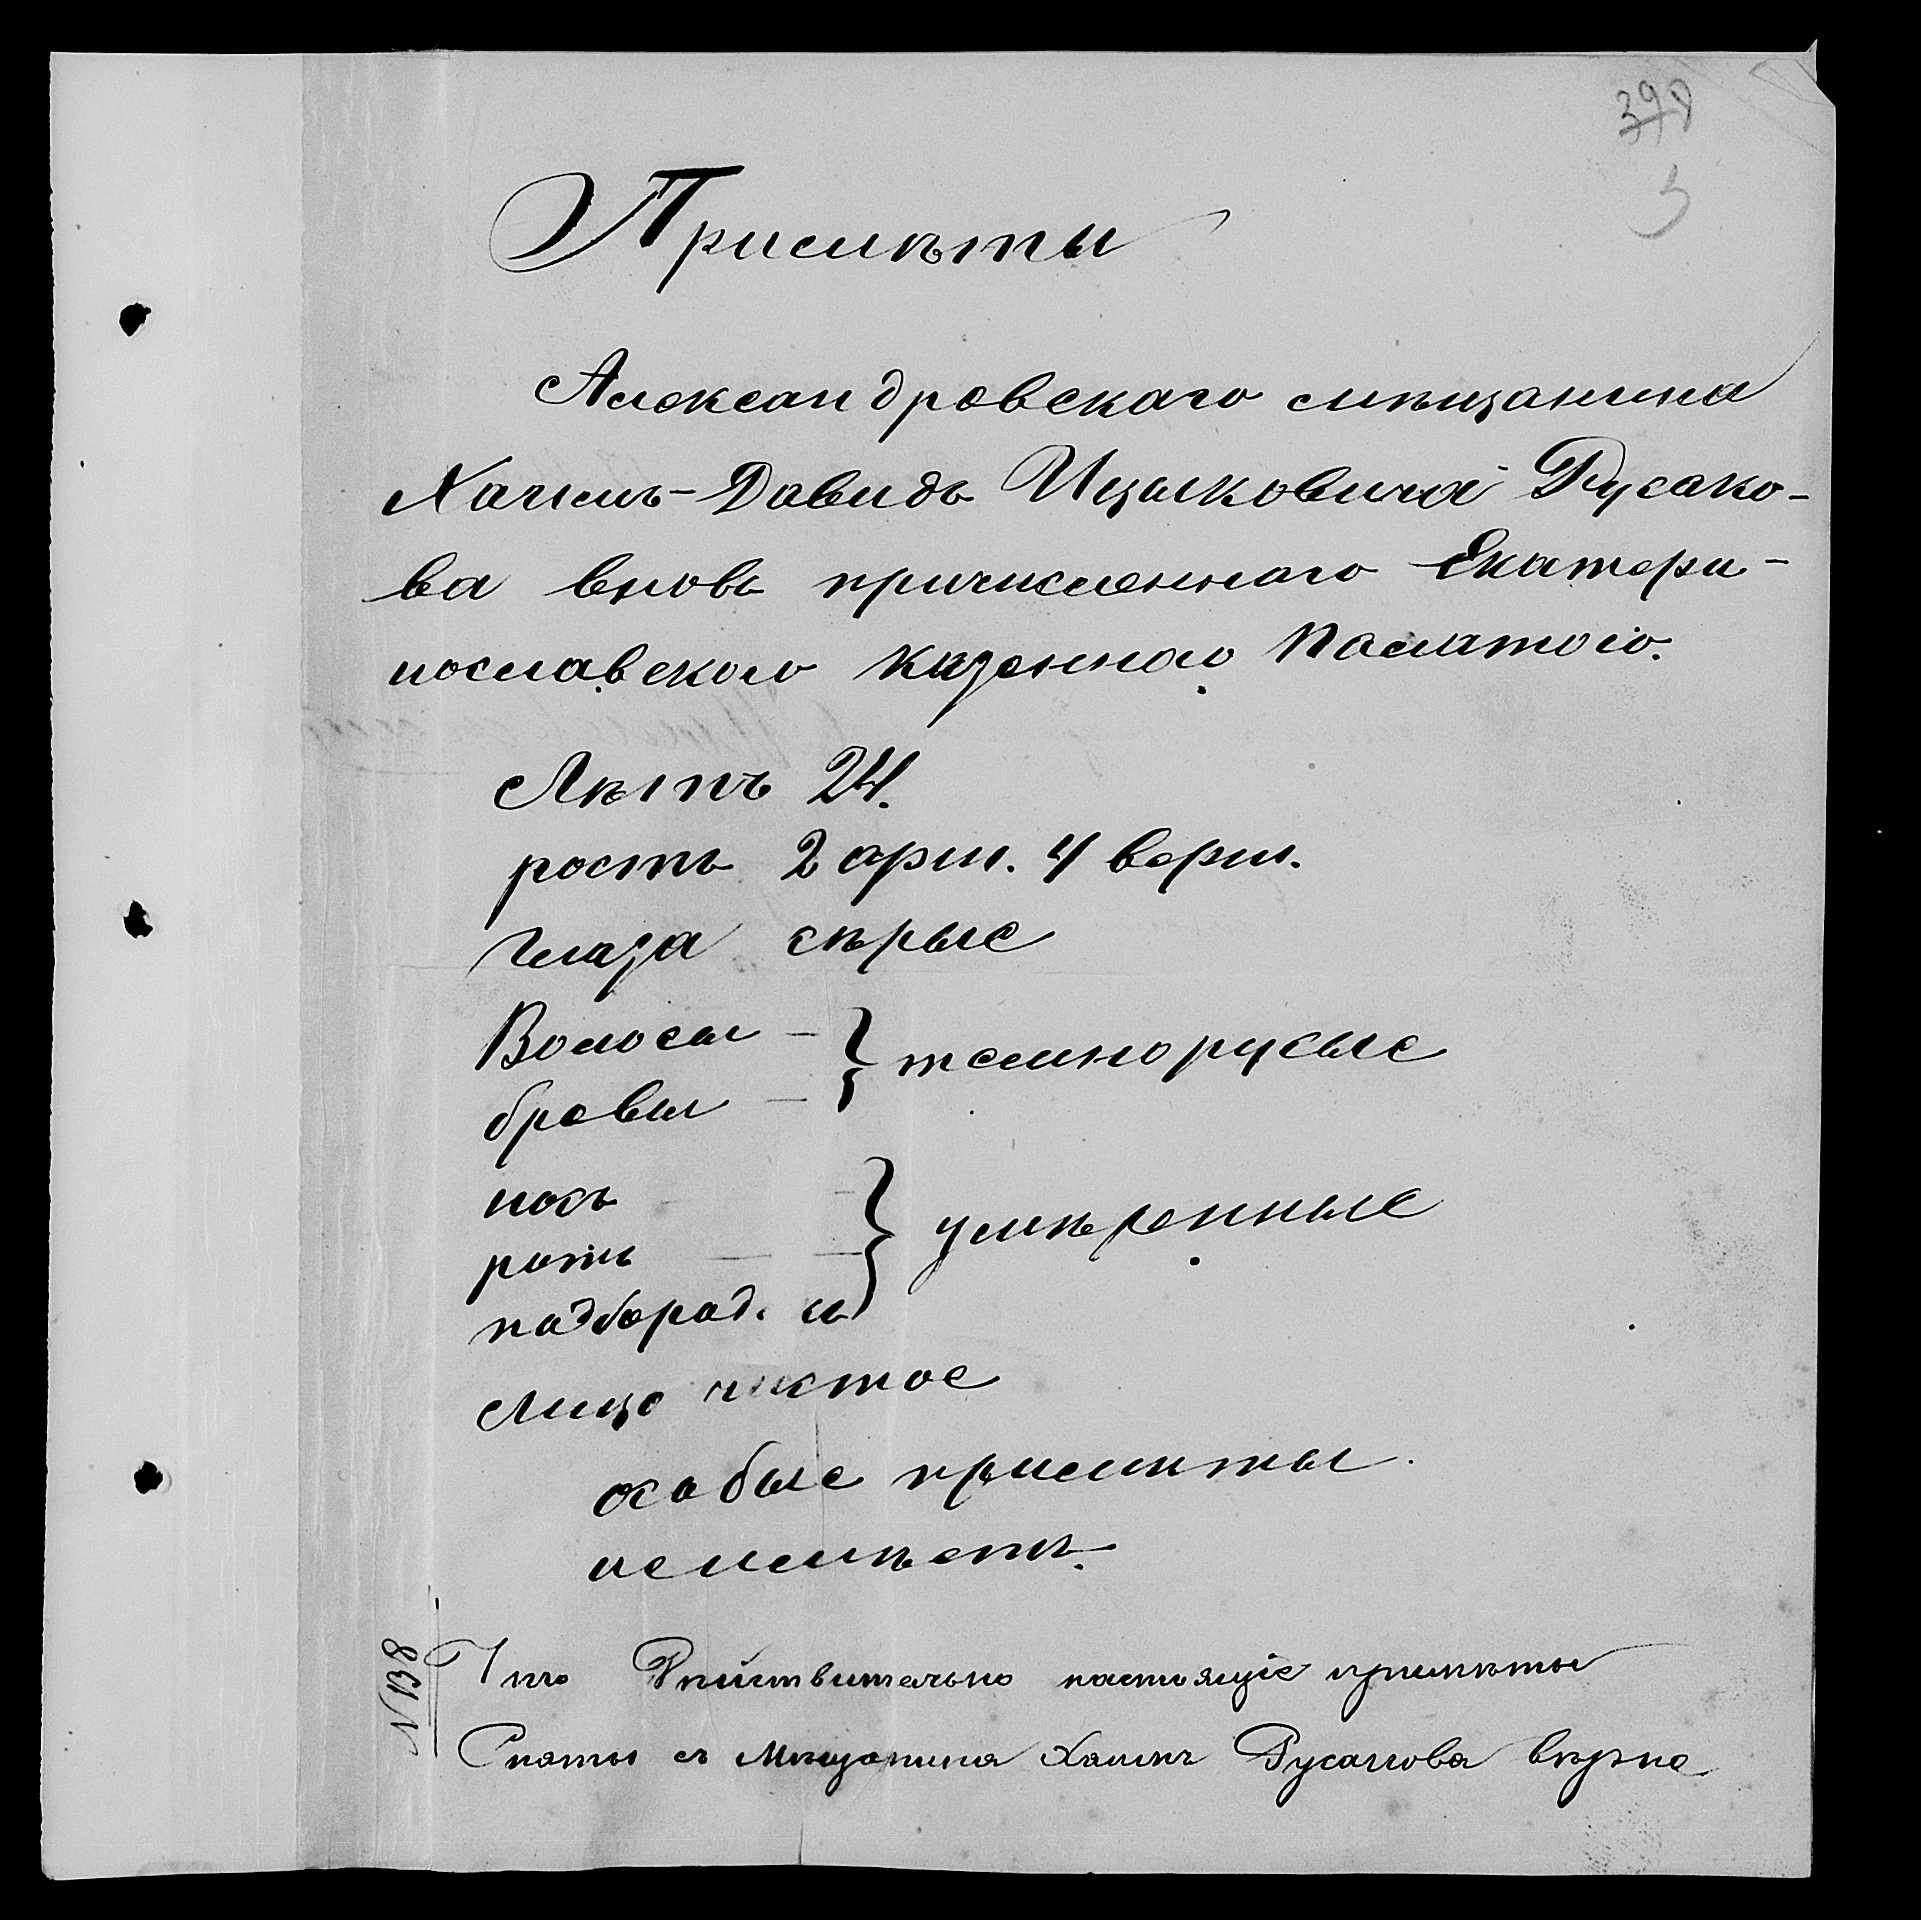 398
3
Примѣты
Александровскаго мѣщанина
Хаимъ-Давидъ Ицковича Русако-
ва вновь причисленнаго Екатери-
нославского Казенною Палатою.
Лѣтъ 24.
ростъ 2 арш. 4 верш.
глаза сѣрые
Волосы — } темнорусые
бровы —
носъ — } умѣренные
ротъ — —
падборад. и
Лицо чистое
особые примѣты
неимѣетъ.
Что Дѣйствительно настоящіе примѣты
Сняты съ Мѣщанина Хаимъ Русакова вѣрно